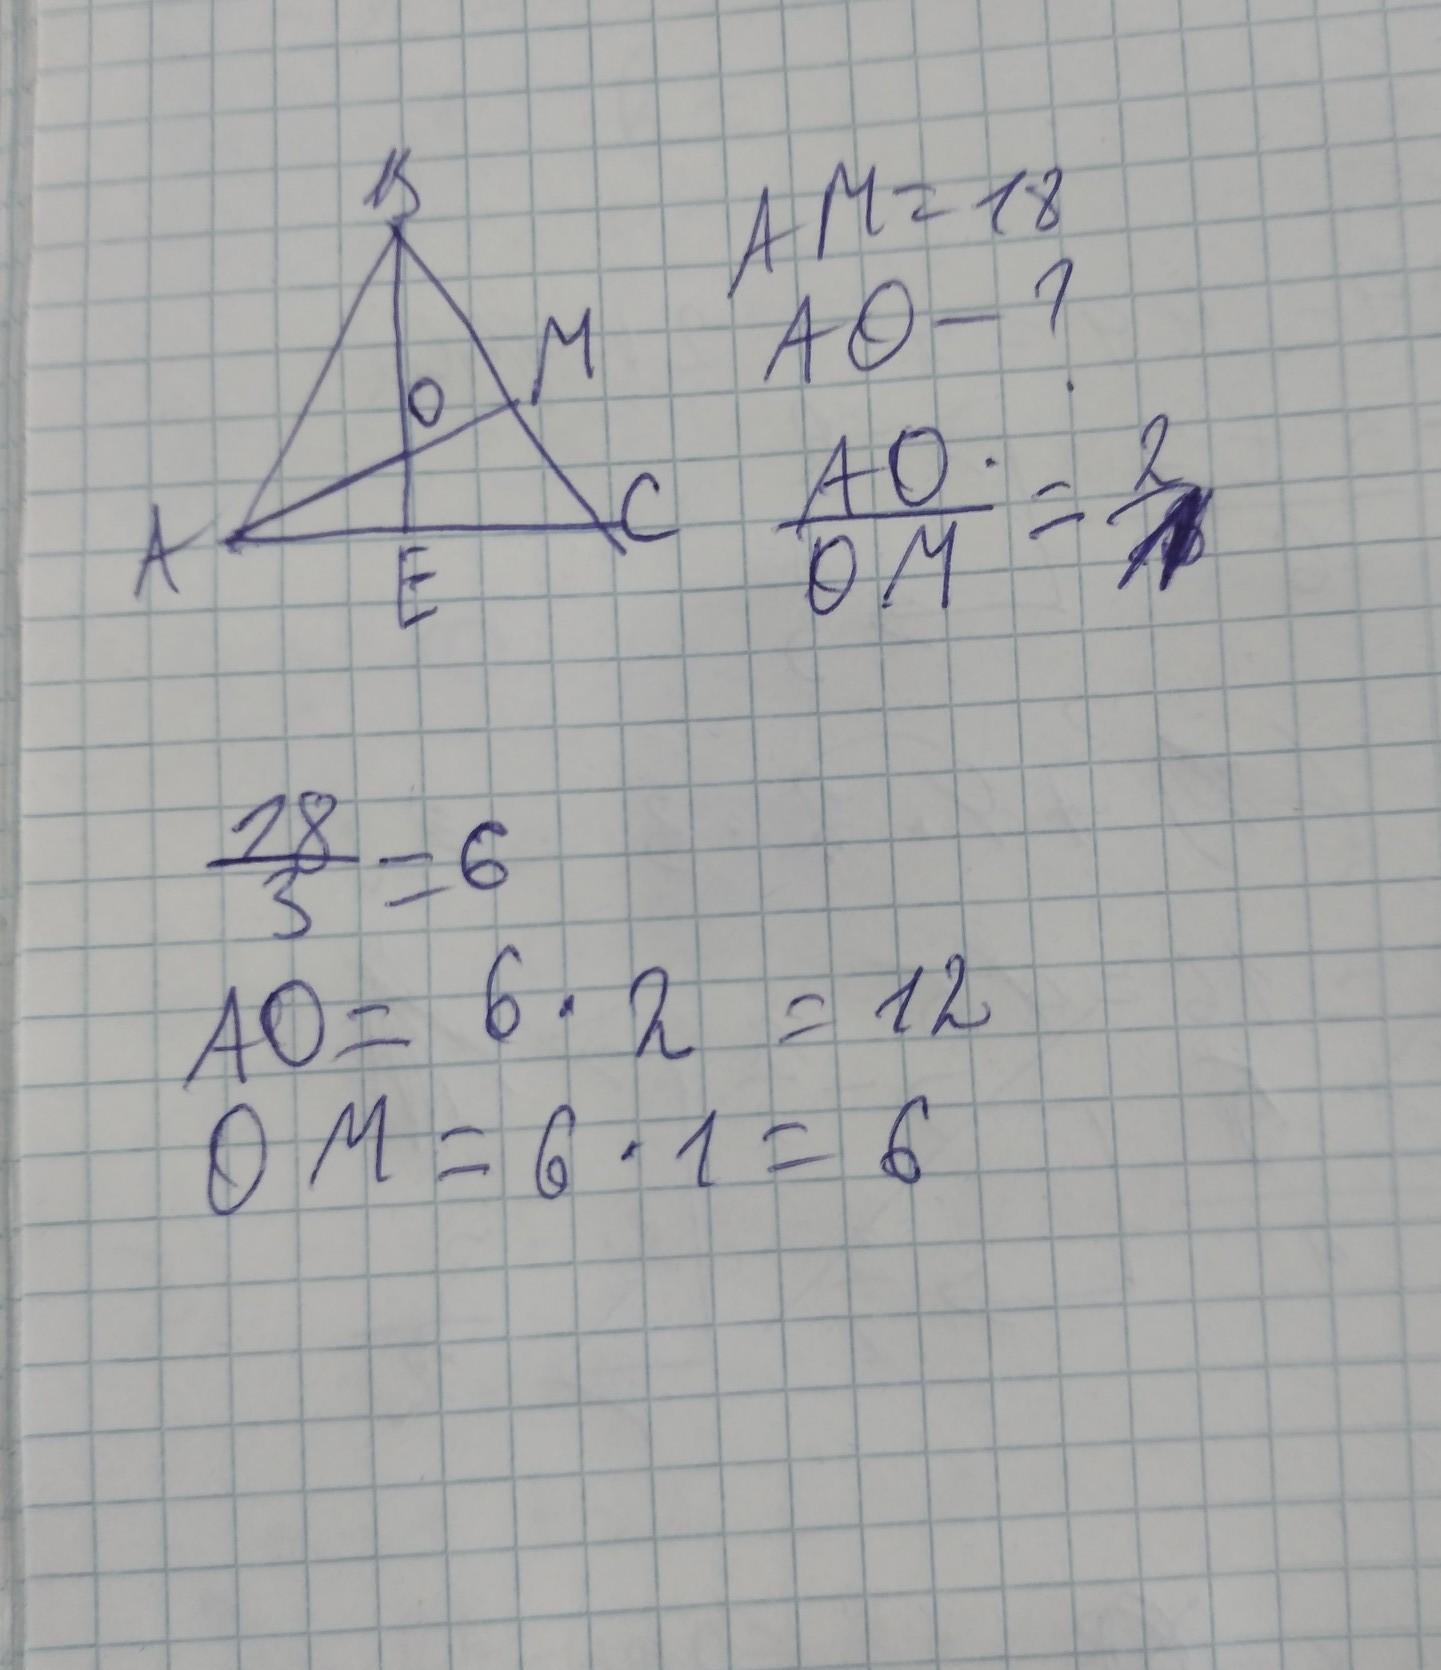 B
M
O
A
C
E
AM=18
AO-?
AO / OM = 2/1
18/3 = 6
AO = 6 · 2 = 12
OM = 6 · 1 = 6